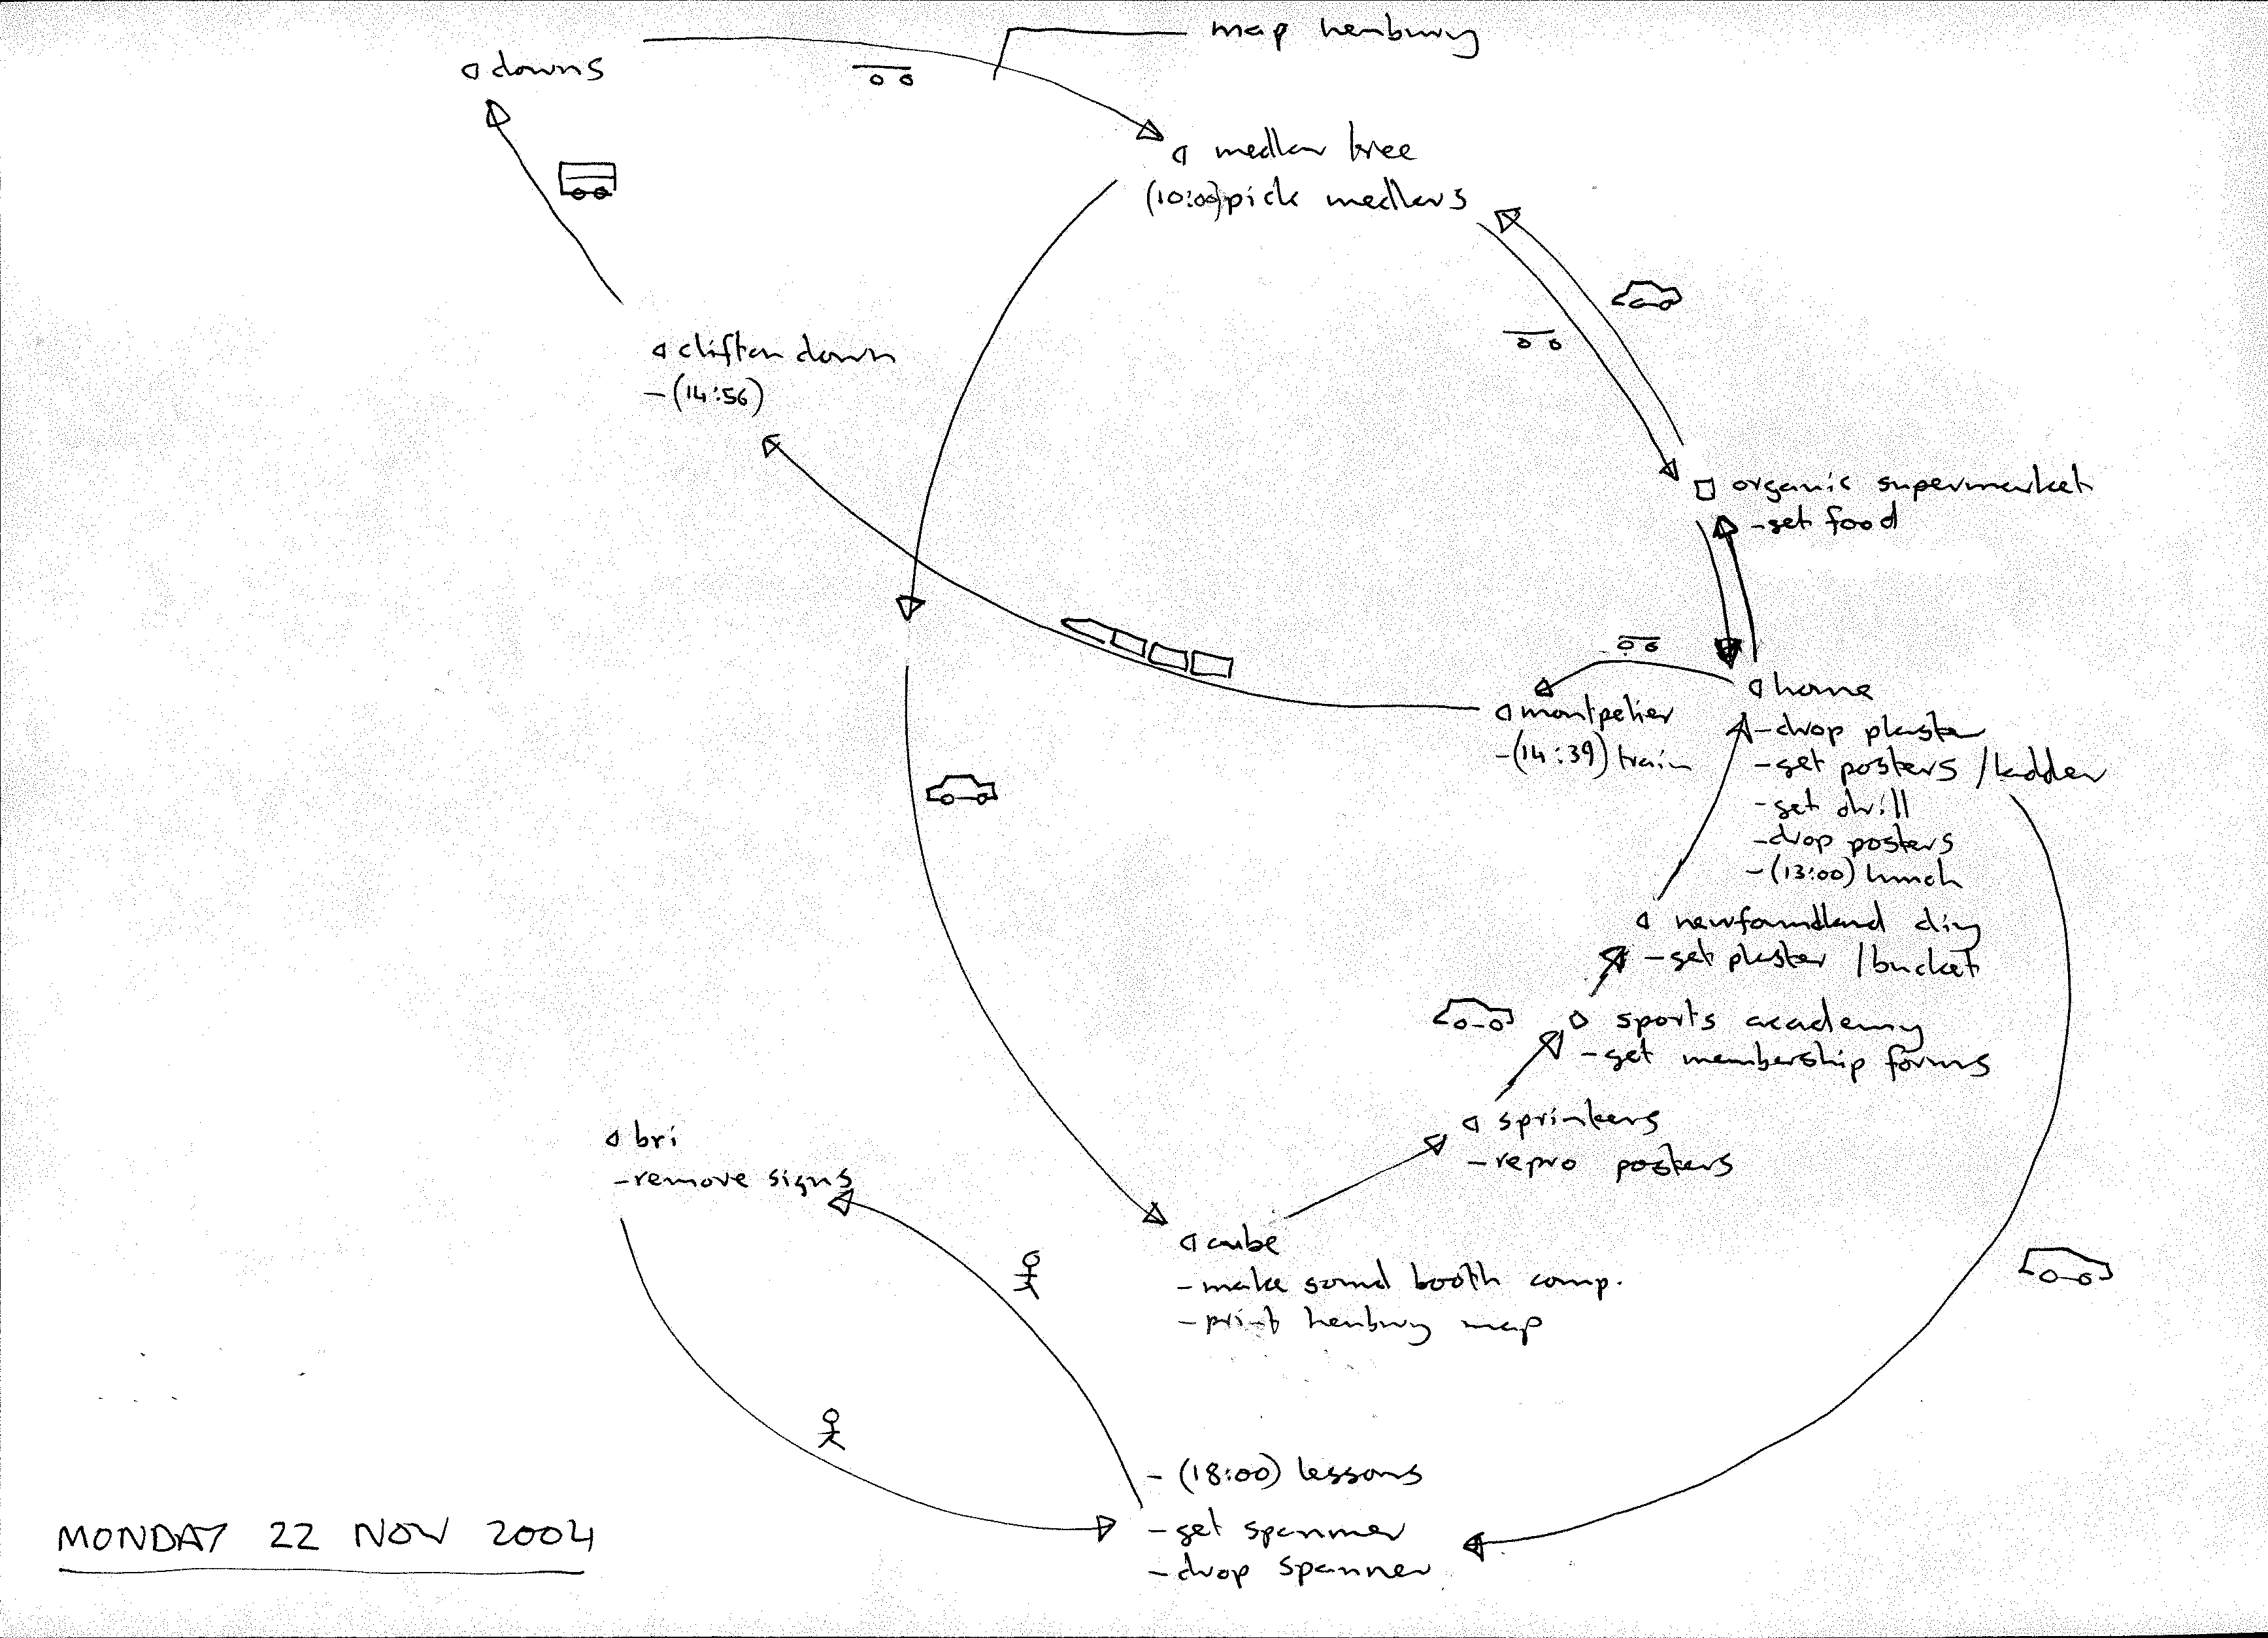 map henbury
downs
medlar tree
(10:00) pick medlars
clifton down
- (14:56)
organic supermarket
- get food
home
- drop plaster
- get posters / ladder
- get drill
- drop posters
- (13:00) lunch
montpelier
- (14:39) train
newfoundland diy
- get plaster / bucket
sports academy
- get membership forms
sprinters
- repro posters
bri
- remove signs
cube
- make sound booth comp.
- print henbury map
- (18:00) lessons
- get spanner
- drop spanner
MONDAY 22 NOV 2004